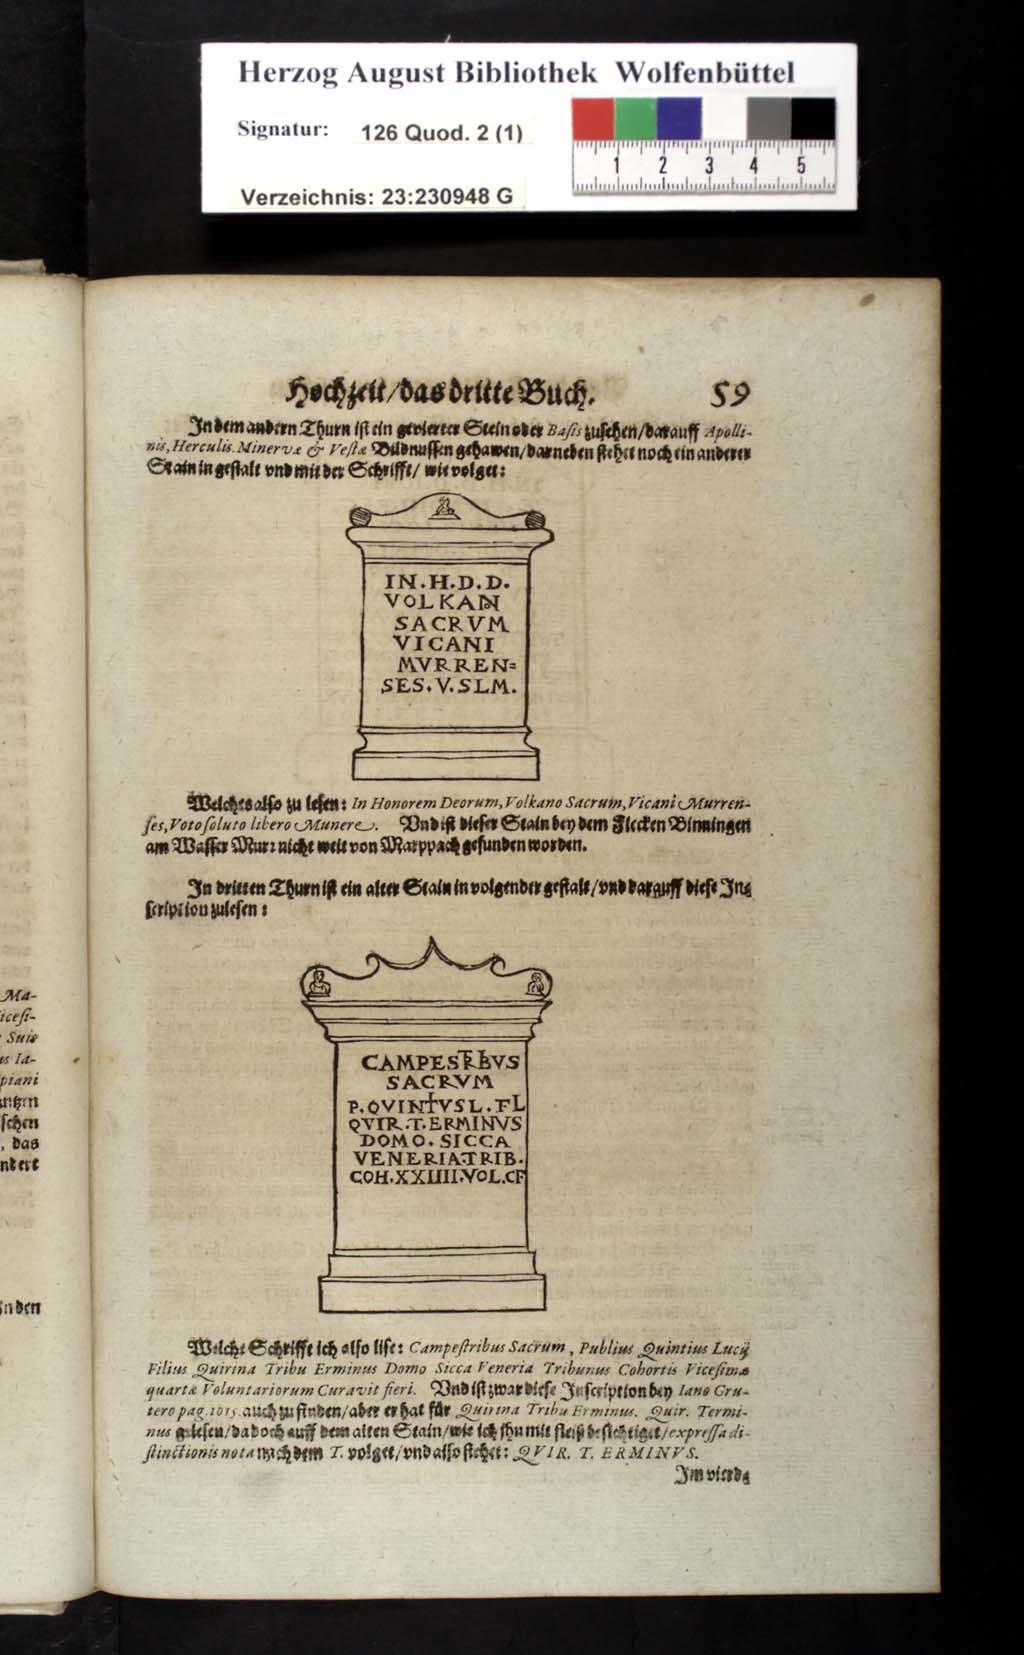 Herzog August Bibliothek Wolfenbüttel
Signatur: 126 Quod. 2 (1)
1 2 3 4 5
Verzeichnis: 23:230948 G
Hochzeit/das dritte Buch. 59
In dem andern Thurn ist ein gevierter Stein oder Basis zusehen/darauff Apolli-
nis, Herculis. Minervæ & Vestæ Bildnussen gehawen/darneben stehet noch ein anderer
Stain in gestalt vnd mit der Schrifft/ wie volget:
IN.H.D.D.
VOLKAN
SACRVM
VICANI
MVRREN=
SES.V.SLM.
Welches also zu lesen: In Honorem Deorum, Volkano Sacrum, Vicani Murren-
ses, Voto soluto libero Munere. Vnd ist dieser Stain bey dem Flecken Binningen
am Wasser Murr nicht weit von Marppach gefunden worden.
In dritten Thurn ist ein alter Stain in volgender gestalt/vnd darauff diese In=
scription zulesen:
CAMPESTRBVS
SACRVM
P.QVINTVSL.FL
QVIR.T.ERMINVS
DOMO.SICCA
VENERIA.TRIB.
COH.XXIIII.VOL.CF
Welche Schrifft ich also lise: Campestribus Sacrum, Publius Quintius Lucij
Filius Quirina Tribu Erminus Domo Sicca Veneria Tribunus Cohortis Vicesimæ
quartæ Voluntariorum Curavit fieri. Vnd ist zwar diese Inscription bey Iano Gru-
tero pag. 1015 auch zu finden/aber er hat für Quirina Tribu Erminus. Quir. Termi-
nus gelesen/da doch auff dem alten Stain/wie ich jhn mit fleiß besichtiget/expressa di-
stinctionis nota nach dem T. volget/vnd also stehet: QVIR. T. ERMINVS.
Im vierd=
Ma-
icesi-
Suis
us Ia-
piani
schen
, das
ndert
nden